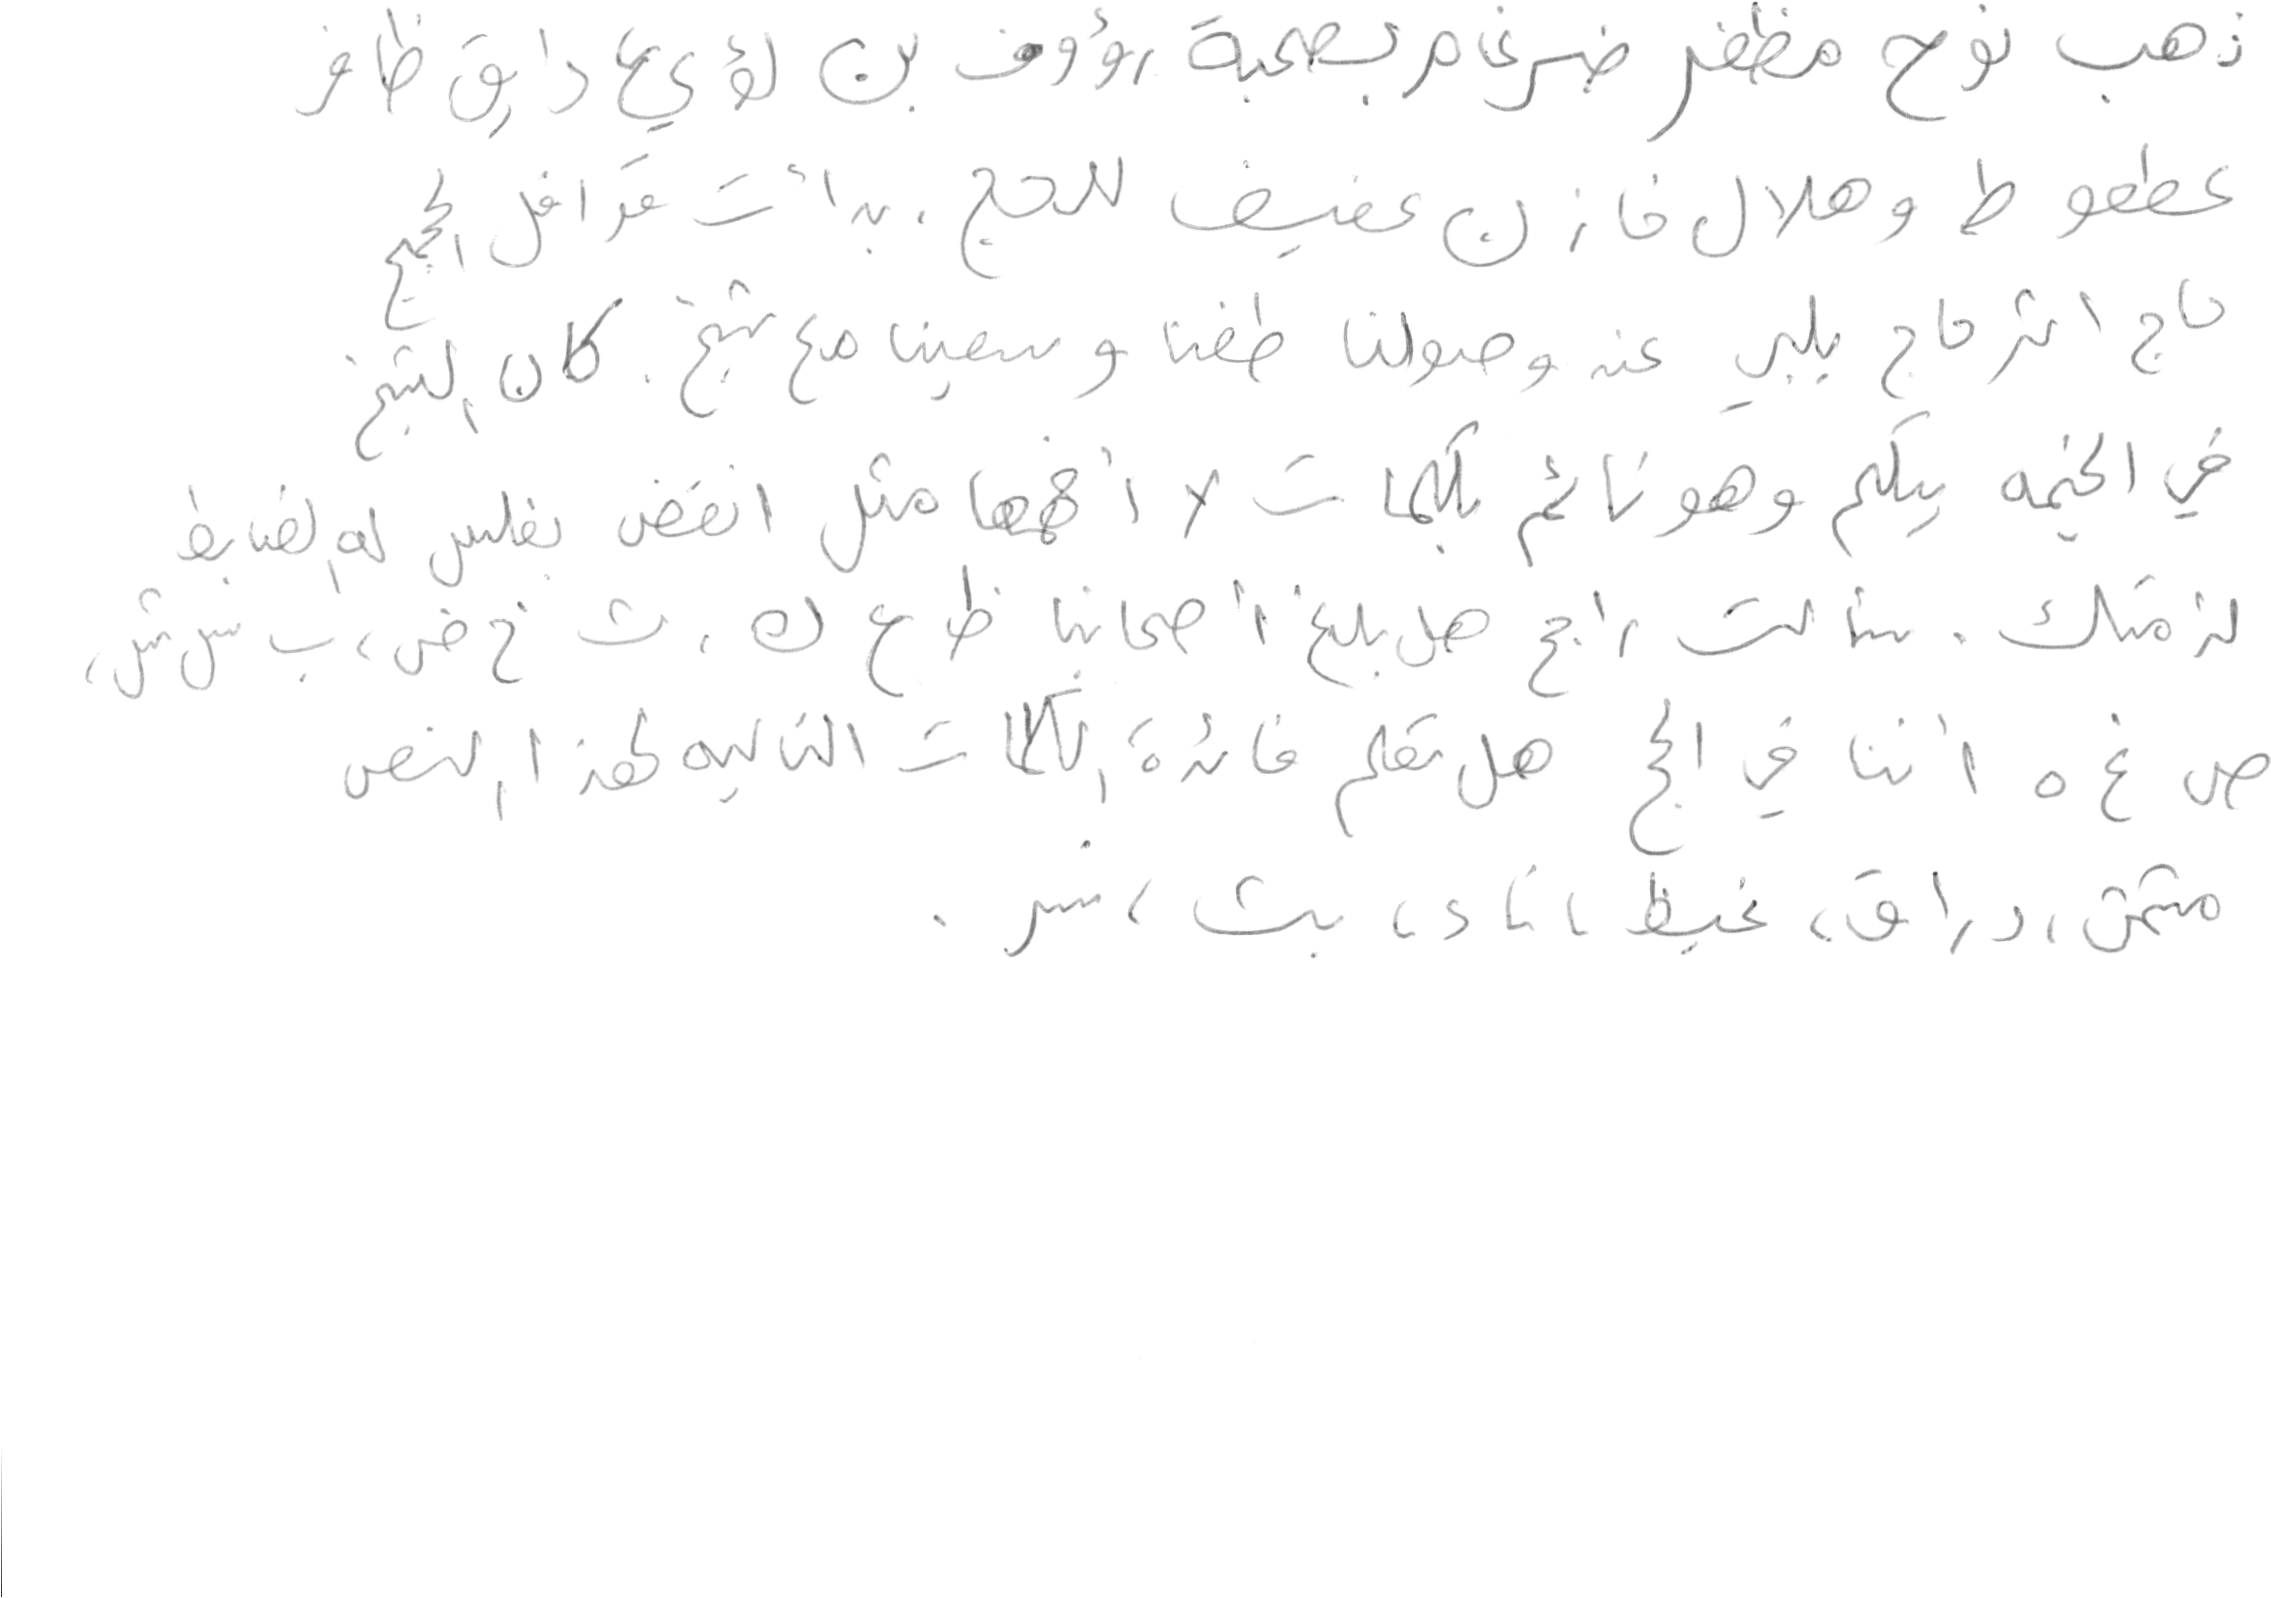 ذهب نوح مظفر ضرغام بصحبة رؤوف بن لؤي رايق ظافر
عطعوط وهلال خازن عفيف للحج. بدأت قوافل الحجيج
حاج اثر حاج يلبي عند وصولنا طفنا وسعينا مع شيخ. كان الشيخ
في الخيمه يتكلم وهو نائم بكلمات لا أفهمها مثل انقض بغلس
لزمتك. سألت هل بلغ أصحابنا ظ ع ك، ث خ ض، ب س ش،
ص غ ه أننا في الحج هل تعلم فائدة الكلمات التاليه لهذا النص
غيظ، نأى، بث، نسر.